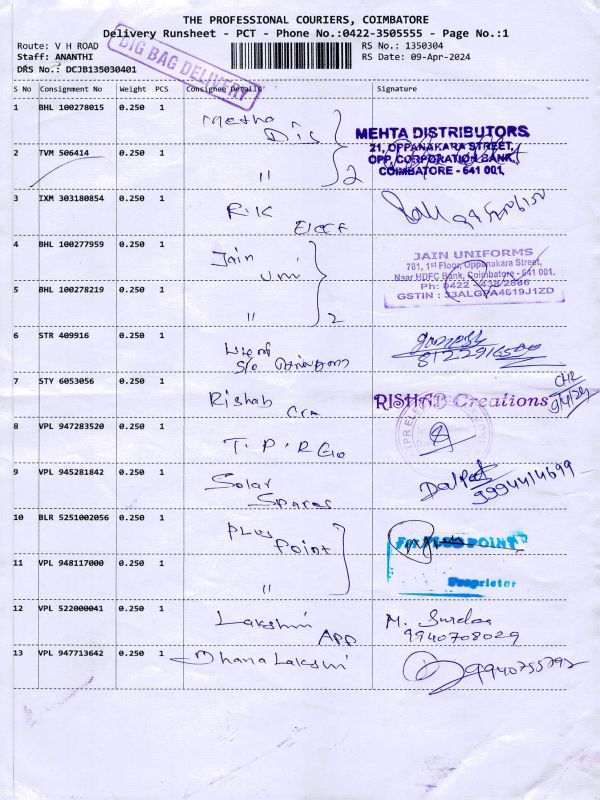 THE PROFESSIONAL COURIERS, COIMBATORE
Delivery Runsheet - PCT - Phone No.:0422-3505555 - Page No.:1
Route: V H ROAD
RS No.: 1350304
Staff: ANANTHI
RS Date: 09-Apr-2024
DRS No.: DCJB135030401
BIG BAG DELIVERY
S No Consignment No Weight PCS Consignee Details Signature
1 BHL 100278015 0.250 1 Metha Dis
MEHTA DISTRIBUTORS
21, OPPANAKARA STREET,
OPP. CORPORATION BANK,
COIMBATORE - 641 001.
2 TVM 506414 0.250 1 " 2
3 IXM 303180854 0.250 1 RIK
4 BHL 100277959 0.250 1 Jain Uni
JAIN UNIFORMS
781, 1st Floor, Oppanakara Street,
Near HDFC Bank, Coimbatore - 641 001.
Ph: 0422 - 438 2886
GSTIN : 33ALGPA4619J1ZD
5 BHL 100278219 0.250 1 " 2
6 STR 409916 0.250 1
S/o
7 STY 6053056 0.250 1 Rishab Cra
RISHAB Creations
9/4/24
8 VPL 947283520 0.250 1 T.P.R
9 VPL 945281842 0.250 1 Solar Spares
9994414699
10 BLR 5251002056 0.250 1 Plus Point
For PLUS POINT
Proprietor
11 VPL 948117000 0.250 1 "
12 VPL 522000041 0.250 1 Lakshmi APP
M.
9940708029
13 VPL 947713642 0.250 1 Dhana Lakshmi